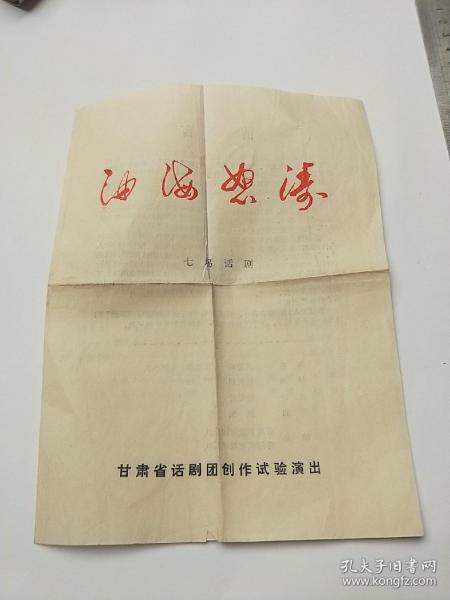 油海怒涛
七场话剧
甘肃省话剧团创作试验演出
孔夫子旧书网
www.kongfz.com